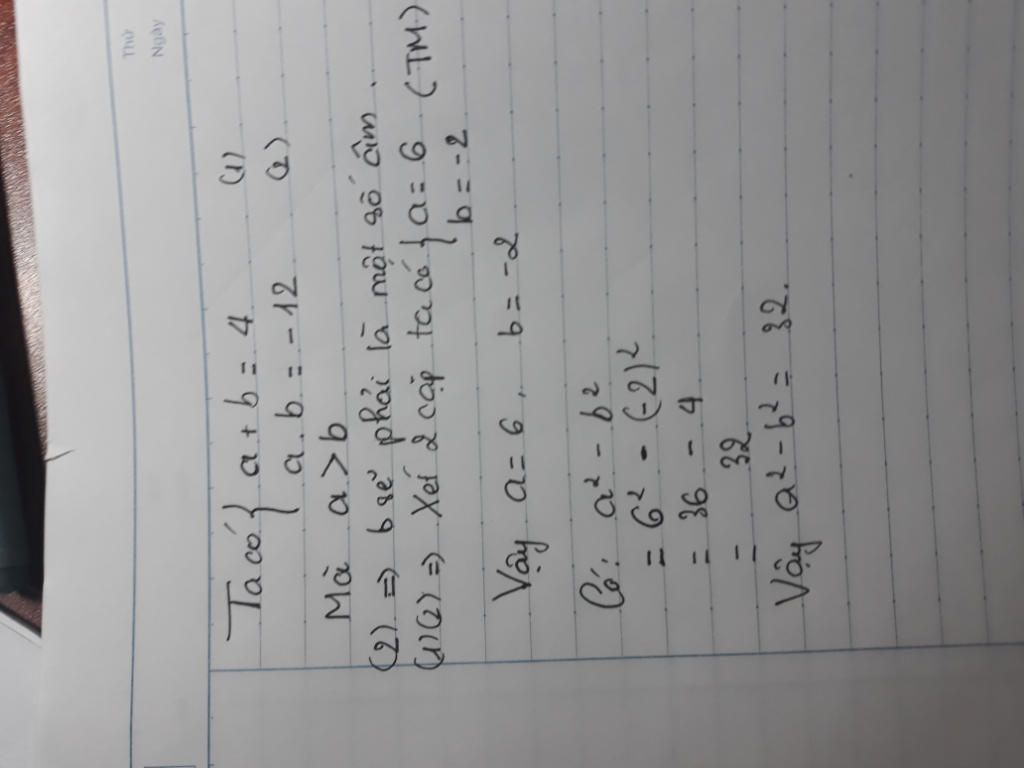 Thứ
Ngày
Ta có { a + b = 4 (1)
a . b = -12 (2)
Mà a > b
(2) => b sẽ phải là một số âm .
(1)(2) => Xét 2 cặp ta có { a = 6 (TM)
b = -2
Vậy a = 6 , b = -2
Có: a² - b²
= 6² - (-2)²
= 36 - 4
= 32
Vậy a² - b² = 32.